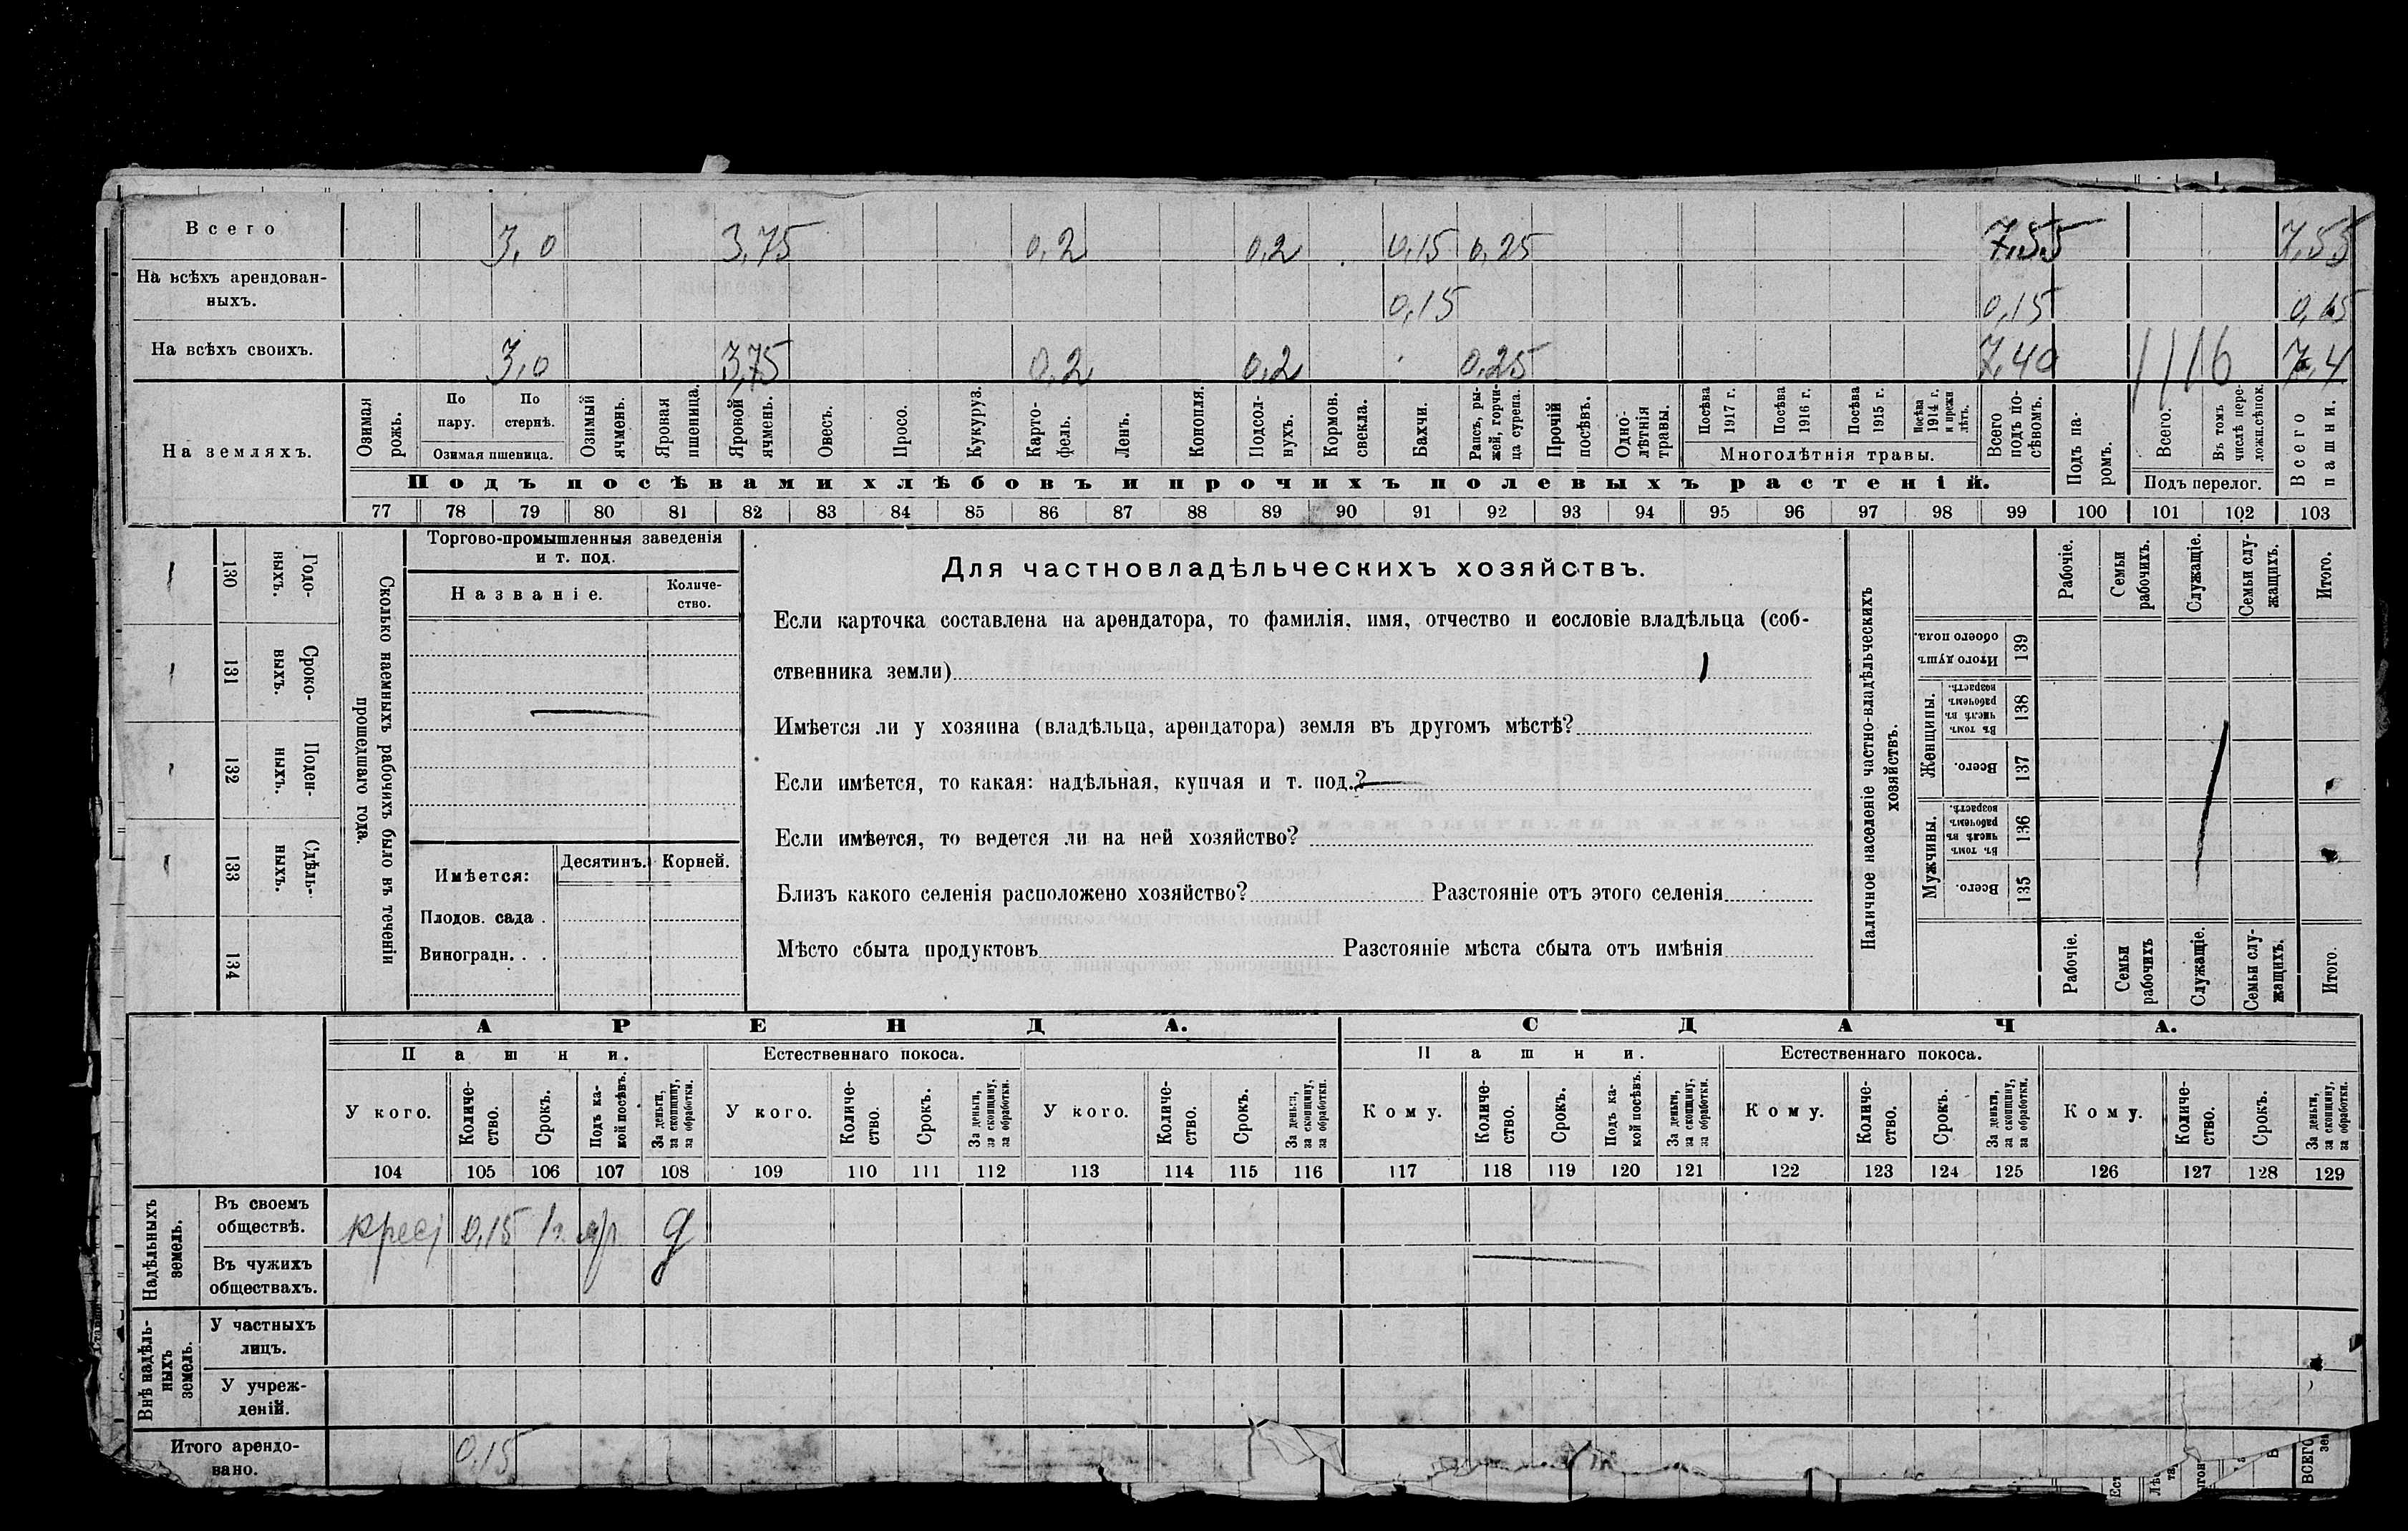 Всего 3,0 3,75 0,2 0,2 0,15 0,25 7,55 7,55
На всѣхъ арендован-
ныхъ. 0,15 0,15 0,15
На всѣхъ своихъ. 3,0 3,75 0,2 0,2 0,25 7,40 7,4
На земляхъ.
Озимая рожь.
По пару.
По стернѣ.
Озимая пшеница.
Озимый ячмень.
Яровая пшеница.
Яровой ячмень.
Овесъ.
Просо.
Кукуруз.
Карто-
фель.
Ленъ.
Конопля.
Подсол-
нухъ.
Кормов. свекла.
Бахчи.
Рапсъ, ры-
жей, горчи-
ца сурепа.
Прочій посѣвъ.
Одно-
лѣтнія травы.
Посѣва 1917 г.
Посѣва 1916 г.
Посѣва 1915 г.
Посѣва 1914 г. и прежн лѣтъ.
Многолѣтнія травы.
Всего подъ по-
сѣвомъ.
Подъ па-
ромъ.
Всего.
Въ томъ числѣ пере-
ложн.сѣнок.
Подъ перелог.
Всего пашни.
Подъ посѣвами хлѣбовъ и прочихъ полевыхъ растеній.
77 78 79 80 81 82 83 84 85 86 87 88 89 90 91 92 93 94 95 96 97 98 99 100 101 102 103
130 Годо-
ныхъ.
131 Сроко-
выхъ.
132 Поден-
ныхъ.
133 Сдѣль-
ныхъ.
134
Сколько наемныхъ рабочихъ было въ теченіи
прошедшаго года.
Торгово-промышленныя заведенія
и т. под.
Названіе. Количе-
ство.
Имѣется: Десятинъ. Корней.
Плодов. сада .
Виноградн. . .
Для частновладѣльческихъ хозяйствъ.
Если карточка составлена на арендатора, то фамилія, имя, отчество и сословіе владѣльца (соб-
ственника земли)
Имѣется ли у хозяина (владѣльца, арендатора) земля въ другомъ мѣстѣ?
Если имѣется, то какая: надѣльная, купчая и т. под.?
Если имѣется, то ведется ли на ней хозяйство?
Близъ какого селенія расположено хозяйство? Разстояніе отъ этого селенія
Мѣсто сбыта продуктовъ Разстояніе мѣста сбыта отъ имѣнія
Наличное населеніе частно-владѣльческихъ
хозяйствъ.
Рабочіе.
Семьи рабочихъ.
Служащіе.
Семьи слу-
жащихъ.
Итого.
Итого душъ обоего пола. 139
Женщины.
Въ томъ числѣ въ рабочемъ возрастѣ. 138
Всего. 137
Мужчины.
Въ томъ числѣ въ рабочемъ возрастѣ. 136
Всего. 135
Рабочіе.
Семьи рабочихъ
Служащіе.
Семьи слу-
жащихъ.
Итого.
АРЕНДА. СДАЧА.
Пашни. Естественнаго покоса. Пашни. Естественнаго покоса.
У кого.
Количе-
ство.
Срокъ.
Подъ ка-
кой посѣвъ.
За деньги, за скопщину, за обработки.
У кого.
Количе-
ство.
Срокъ.
За деньги, за скопщину, за обработки.
У кого.
Количе-
ство.
Срокъ.
За деньги, за скопщину, за обработки.
Кому.
Количе-
ство.
Срокъ.
Подъ ка-
кой посѣвъ.
За деньги, за скопщину, за обработки.
Кому.
Количе-
ство.
Срокъ.
За деньги, за скопщину, за обработки.
Кому.
Количе-
ство.
Срокъ.
За деньги, за скопщину, за обработки.
104 105 106 107 108 109 110 111 112 113 114 115 116 117 118 119 120 121 122 123 124 125 126 127 128 129
Надѣльныхъ земель.
Въ своемъ
обществѣ. крест 0,15 1г. яр д
Въ чужихъ
обществахъ.
Внѣ надѣль-
ныхъ земель.
У частныхъ
лицъ.
У учреж-
деній.
Итого арендо-
вано. 0,15
ВСЕГО